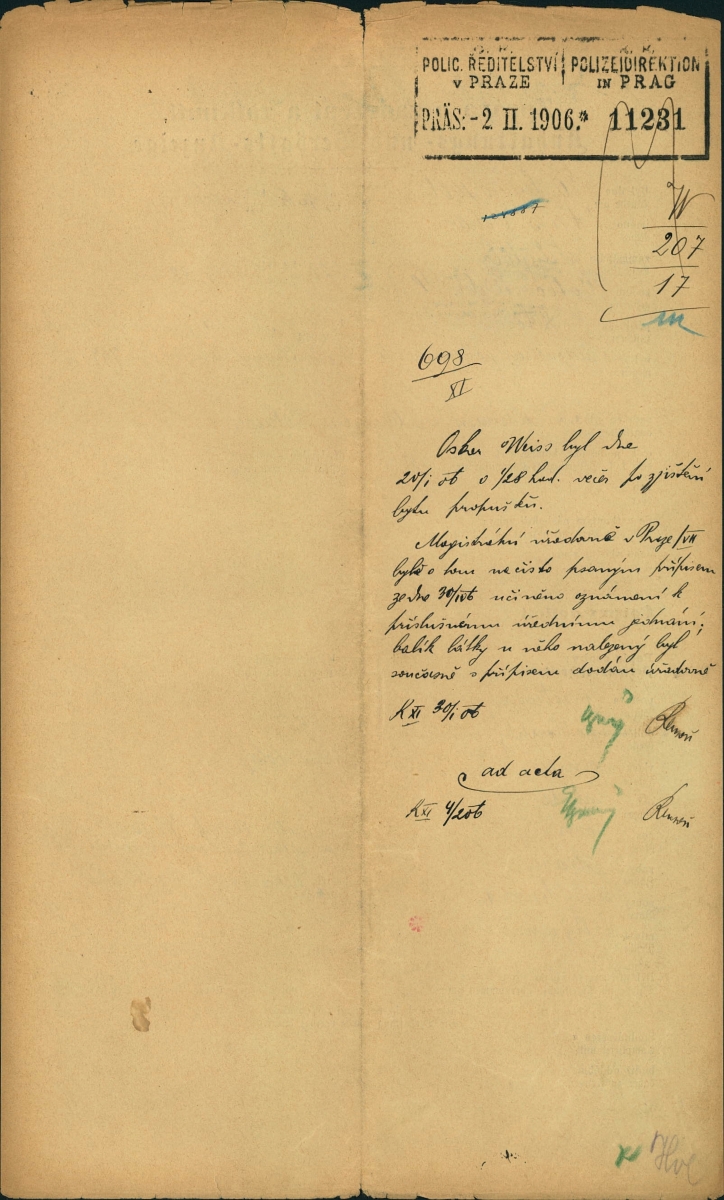 POLIC. ŘEDITELSTVÍ POLIZEIDIREKTION
V PRAZE IN PRAG
PRÄS: -2 II. 1906.* 11231
W
207
17
698
XI
Oskar Weiss byl dne
20/I 06 o 1/2 8 hod. večer po zjištění
bytu propuštěn.
Magistrátní úřadovně v Praze/VII
bylo o tom načisto psaným přípisem
ze dne 30/I 06 učiněno oznámení k
příslušnému úřednímu jednání;
balík látky u něho nalezený byl
současně s přípisem dodán úřadovně
K XI 30/I 06
ad acta
K XI 4/2 06